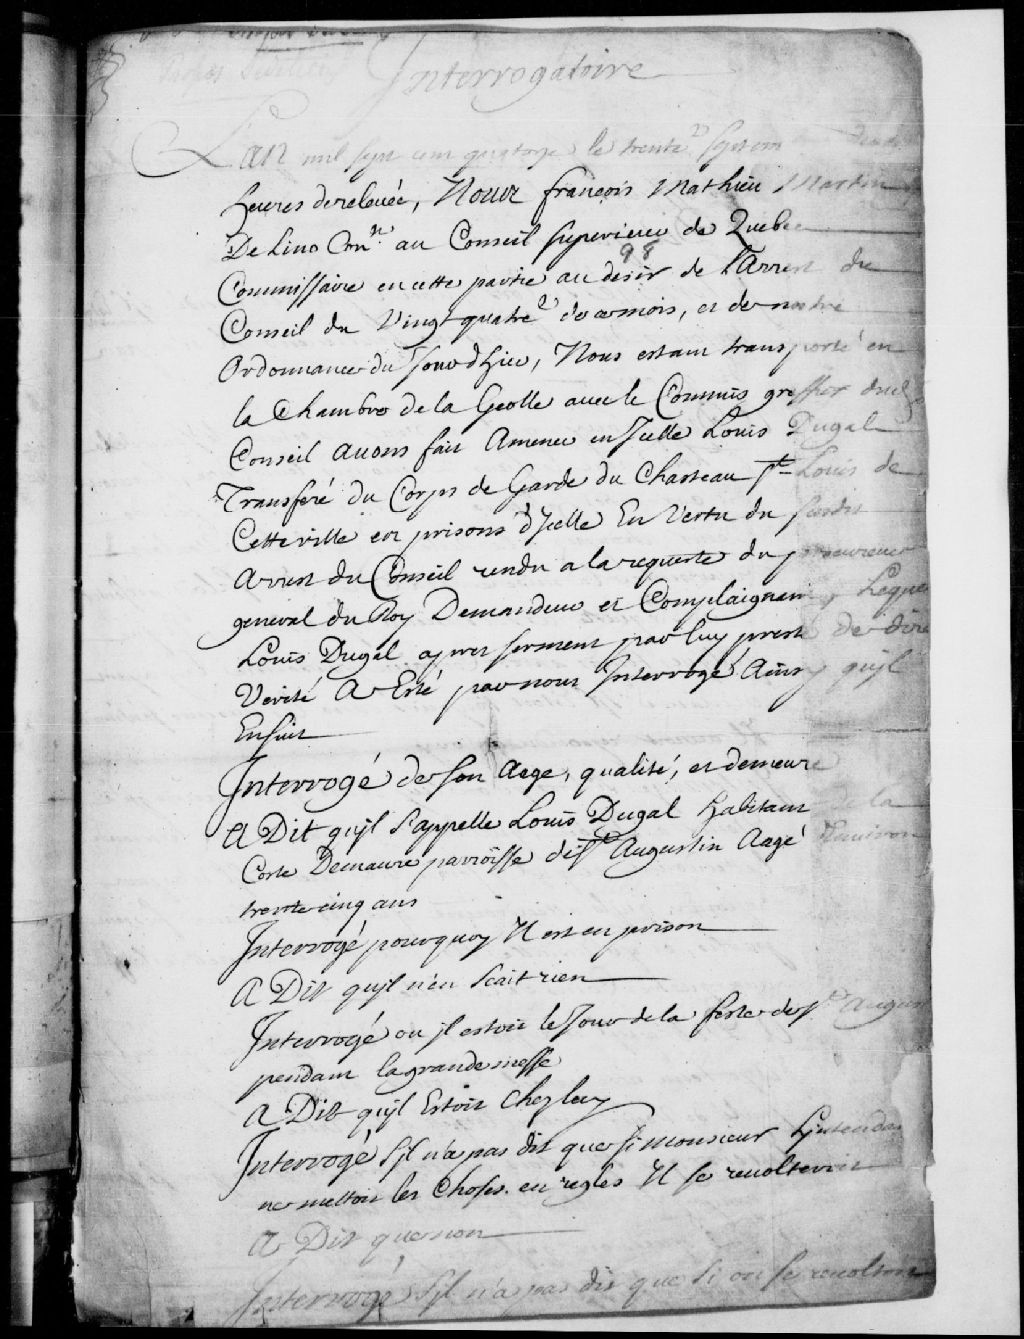 Interrogatoire
L'an mil sept cent quatorze le trente.e Septem
heures de relevée, Nous françois Mathieu Martin
De Lino Con.er au Conseil superieur de Quebec
98
Commissaire en cette partie au desir de l'Arrest du
Conseil du Vingt quatre.e de ce mois, et de nostre
Ordonnance du Jour d'hier, Nous estant transporté en
la Chambre de la Geolle avec le Commis greffier dud
Conseil avons fait Amener en Icelle Louis Dugal
Transferé du Corps de Garde du Chasteau St Louis de
Cette ville en prisons d'Icelle En Vertu du susdit
Arrest du Conseil rendu a la requeste du procureur
general du Roy Demandeur et Complaignant, Leque
Louis Dugal apres serment par luy presté de dire
Verité A Esté par nous Interrogé Ainsy qu'jl
Ensuit
Interrogé de son Aage, qualité, et demeure
A Dit qu'jl s'appelle Louis Dugal habitant de la
Coste Demaure parroisse de St Augustin Aagé d'environ
trente cinq ans
Interrogé pourquoy Il est en prison
A Dit qu'jl n'en scait rien
Interrogé ou jl estoit le Jour de la feste de St August
pendant la grande messe
A Dit qu'jl Estoit chez luy
Interrogé s'jl n'a pas dit que si monsieur L'jntendan
ne mettoit les choses en regles Il se revolteroit
A Dit que non
Interrogé s'jl n'a pas dit que si on se revoltoit